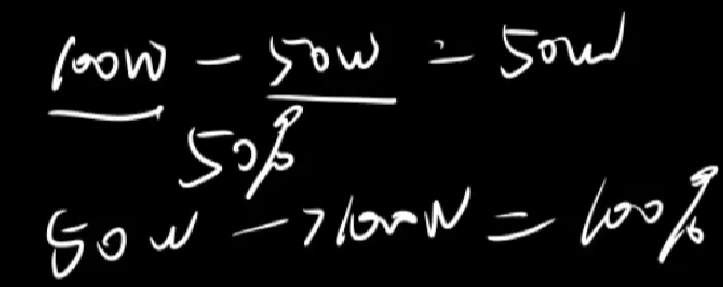 100W - 50W = 50W
50%
50W -> 100W = 100%